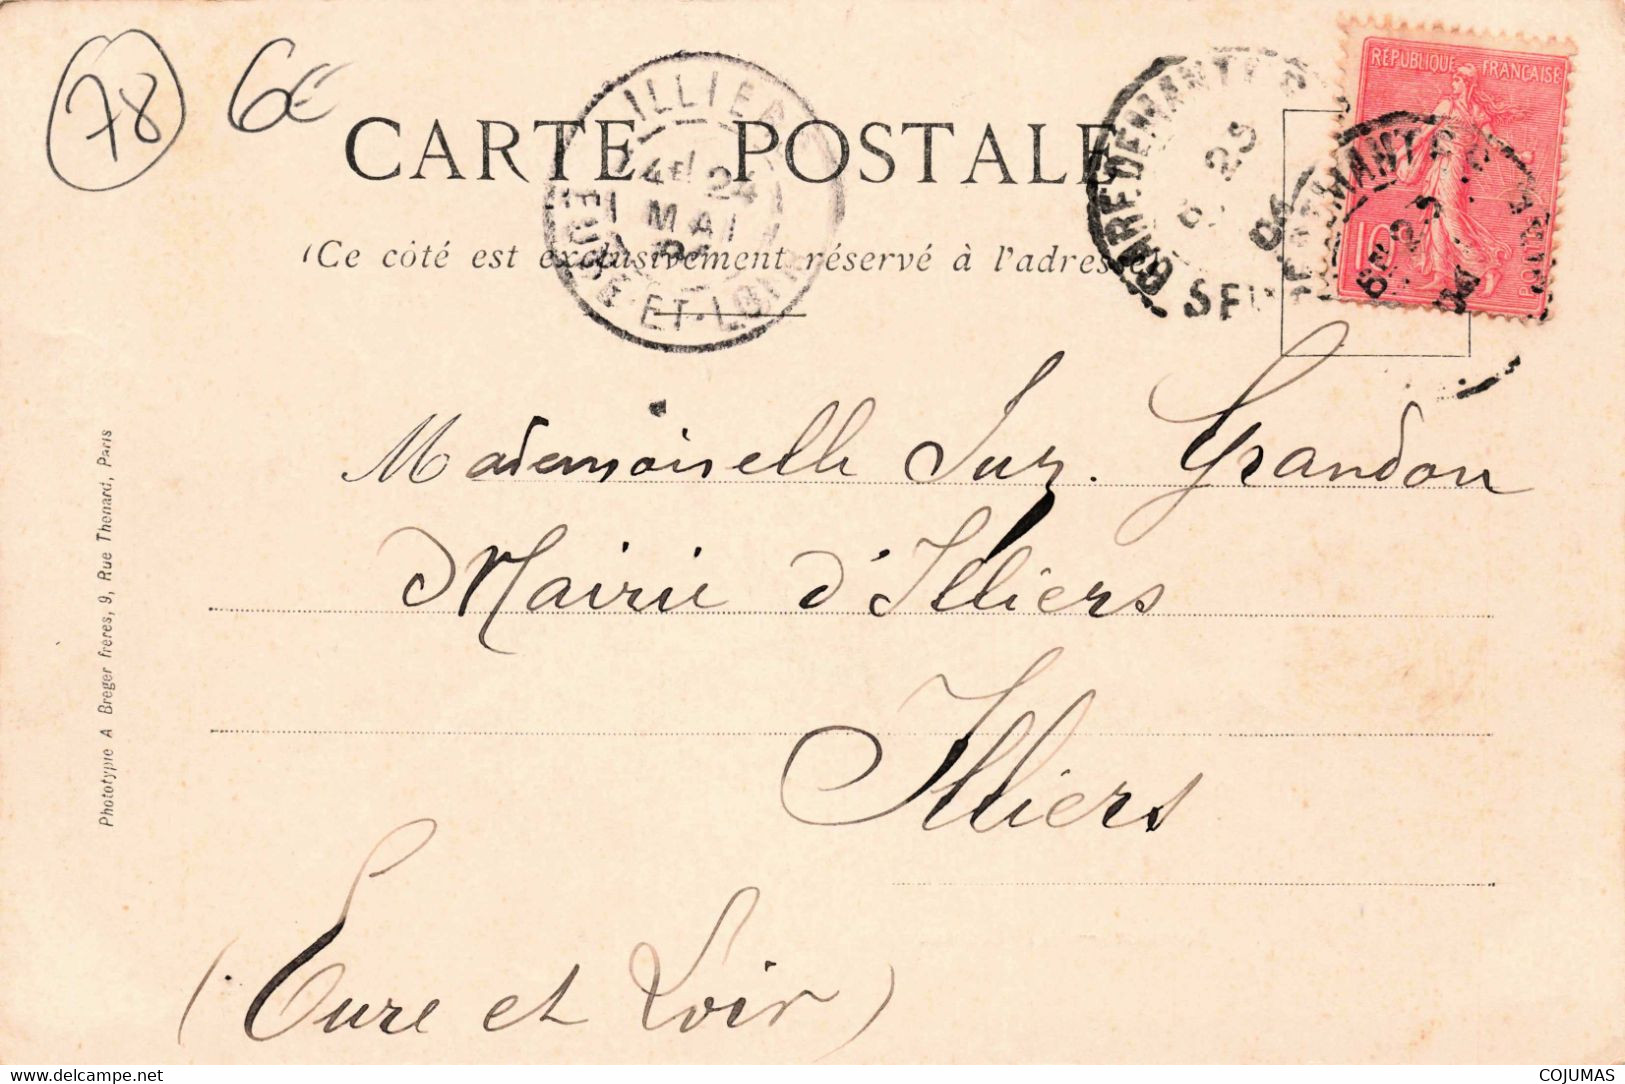 78 6€
CARTE POSTALE
(Ce côté est exclusivement réservé à l'adresse)
ILLIERS
24
MAI
04
EURE-ET-LOIR
GARE DE MANTES
23
RÉPUBLIQUE FRANÇAISE
10
Mademoiselle Suz. Grandon
Mairie d'Illiers
Illiers
(Eure et Loir)
Phototypie A Breger freres, 9, Rue Thenard, Paris
www.delcampe.net
COJUMAS